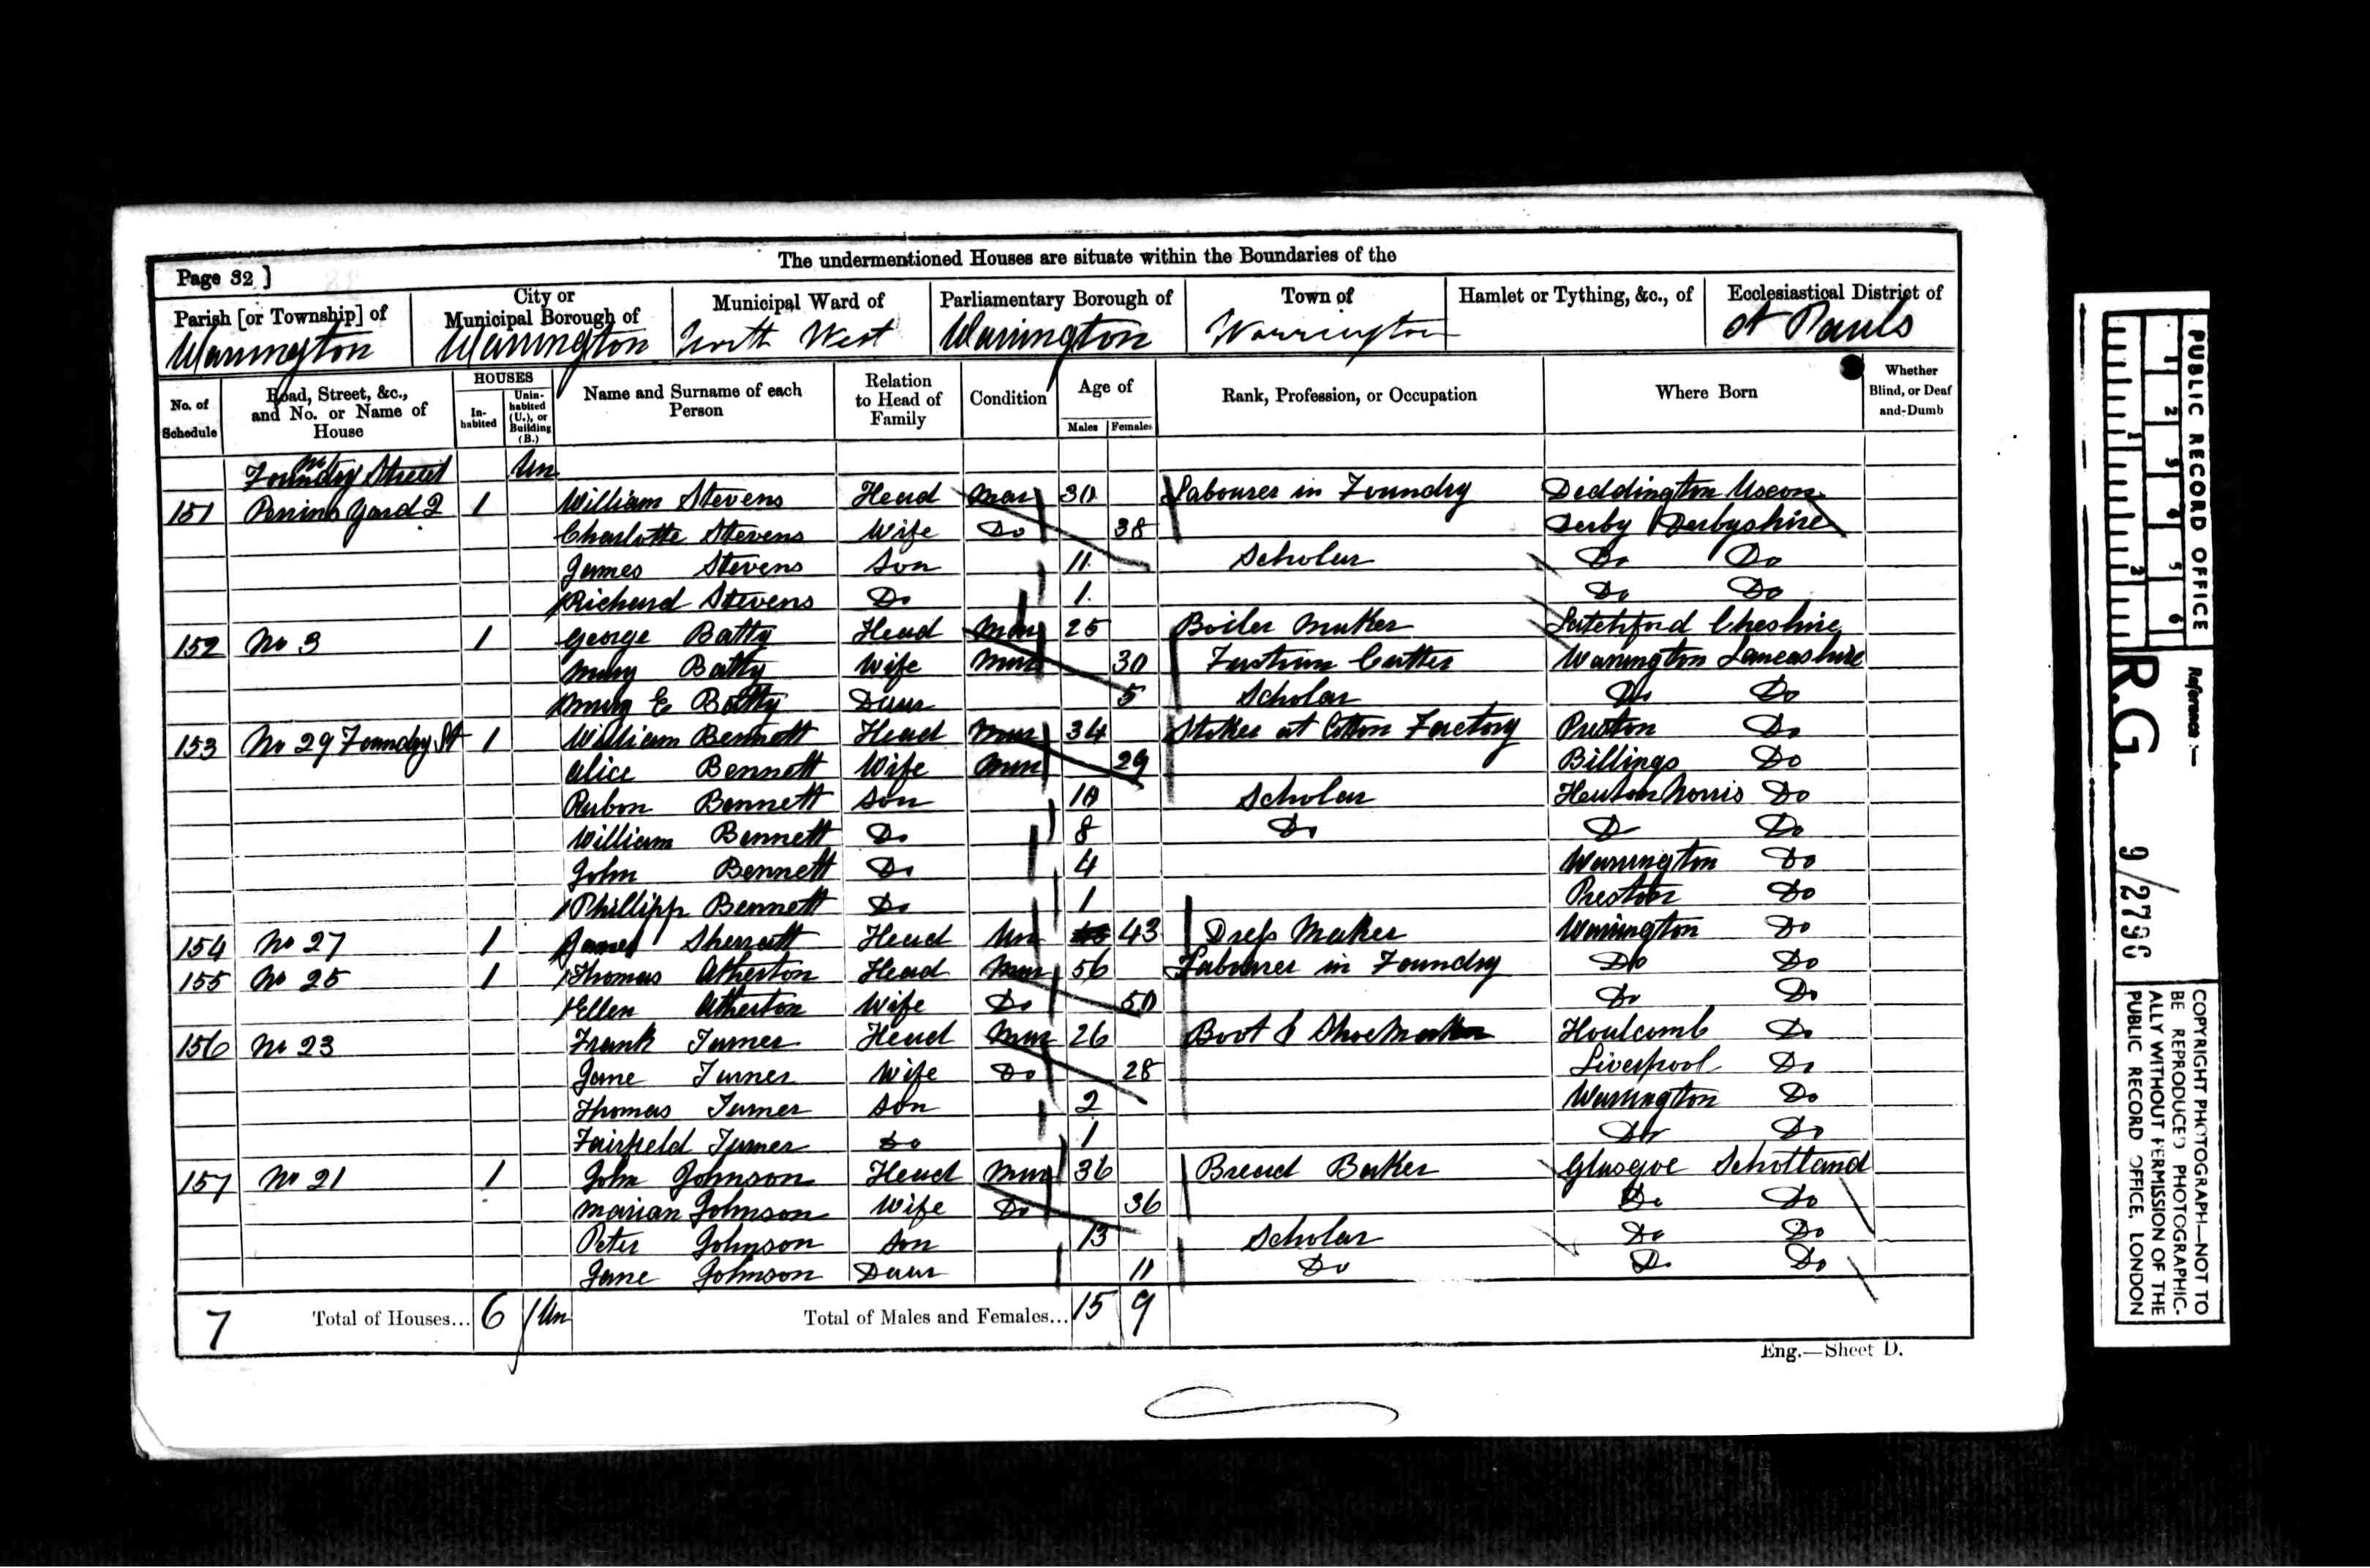 The undermentioned Houses are situate within the Boundaries of the
Page 32 ]
Parish [or Township] of Warrington
City or Municipal Borough of Warrington
Municipal Ward of North West
Parliamentary Borough of Warrington
Town of Warrington
Hamlet or Tything, &c., of
Ecclesiastical District of St Pauls
No. of Schedule
Road, Street, &c., and No. or Name of House
HOUSES
In-habited
Unin-habited (U.), or Building (B.)
Name and Surname of each Person
Relation to Head of Family
Condition
Age of
Males
Females
Rank, Profession, or Occupation
Where Born
Whether Blind, or Deaf-and-Dumb
Foundry Street Un
151 Perrins Yard 2 1 William Stevens Head Mar 30 Labourer in Foundry Deddington
Charlotte Stevens Wife Do 38 Derby Derbyshire
James Stevens Son 11 Scholar Do Do
Richard Stevens Do 1 Do Do
152 No 3 1 George Batty Head Mar 25 Boiler Maker Latchford Cheshire
Mary Batty Wife Mar 30 Fustian Cutter Warrington Lancashire
Mary E Batty Daur 5 Scholar Do Do
153 No 29 Foundry St 1 William Bennett Head Mar 34 Stoker at Cotton Factory Preston Do
Alice Bennett Wife Mar 29 Billings Do
Rubon Bennett Son 10 Scholar Heaton Norris Do
William Bennett Do 8 Do Do Do
John Bennett Do 4 Warrington Do
Phillipp Bennett Do 1 Preston Do
154 No 27 1 Sherratt Head Un 43 Dress Maker Warrington Do
155 No 25 1 Thomas Atherton Head Mar 56 Labourer in Foundry Do Do
Ellen Atherton Wife Do 50 Do Do
156 No 23 Frank Turner Head Mar 26 Boot & Shoe Maker Houlcomb Do
Jane Turner Wife Do 28 Liverpool Do
Thomas Turner Son 2 Warrington Do
Fairfield Turner Do 1 Do Do
157 No 21 1 John Johnson Head Mar 36 Bread Baker Glasgoe Schottand
Marian Johnson Wife Do 36 Do Do
Peter Johnson Son 13 Scholar Do Do
Jane Johnson Daur 11 Do Do Do
7 Total of Houses... 6 1 Un Total of Males and Females... 15 9
Eng.—Sheet D.
PUBLIC RECORD OFFICE
1 2 3 4 5 6
1 2
Reference :—
R.G. 9/2796
COPYRIGHT PHOTOGRAPH—NOT TO
BE REPRODUCED PHOTOGRAPHIC-
ALLY WITHOUT PERMISSION OF THE
PUBLIC RECORD OFFICE, LONDON